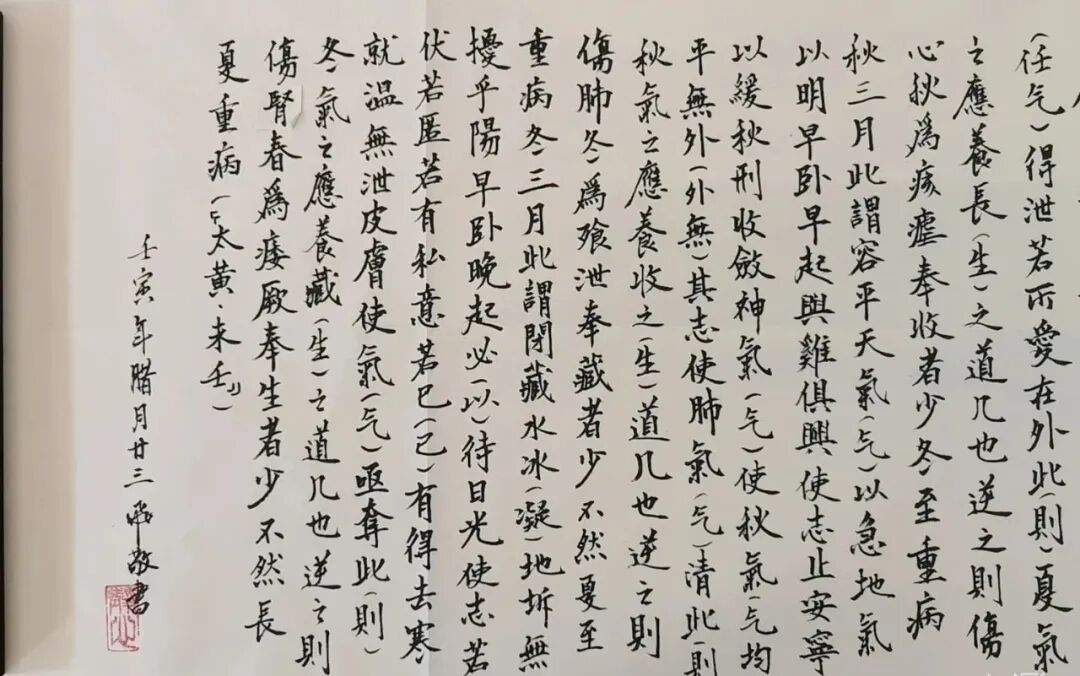 （任气）得泄若所愛在外此（則）夏氣
之應養長（生）之道几也逆之則傷
心秋爲痎瘧奉收者少冬至重病
秋三月此謂容平天氣（气）以急地氣
以明早卧早起與雞俱興使志止安寧
以緩秋刑收斂神氣（气）使秋氣（气）均
平無外（外無）其志使肺氣（气）清此（則）
秋氣之應養收之（生）道几也逆之則
傷肺冬爲飱泄奉藏者少不然夏至
重病冬三月此謂閉藏水冰（凝）地坼無
擾乎陽早卧晚起必（以）待日光使志若
伏若匿若有私意若已（己）有得去寒
就温無泄皮膚使氣（气）亟奪此（則）
冬氣之應養藏（生）之道几也逆之則
傷腎春爲痿厥奉生者少不然長
夏重病（『太黄·未壬』）
壬寅年腊月廿三 敬書